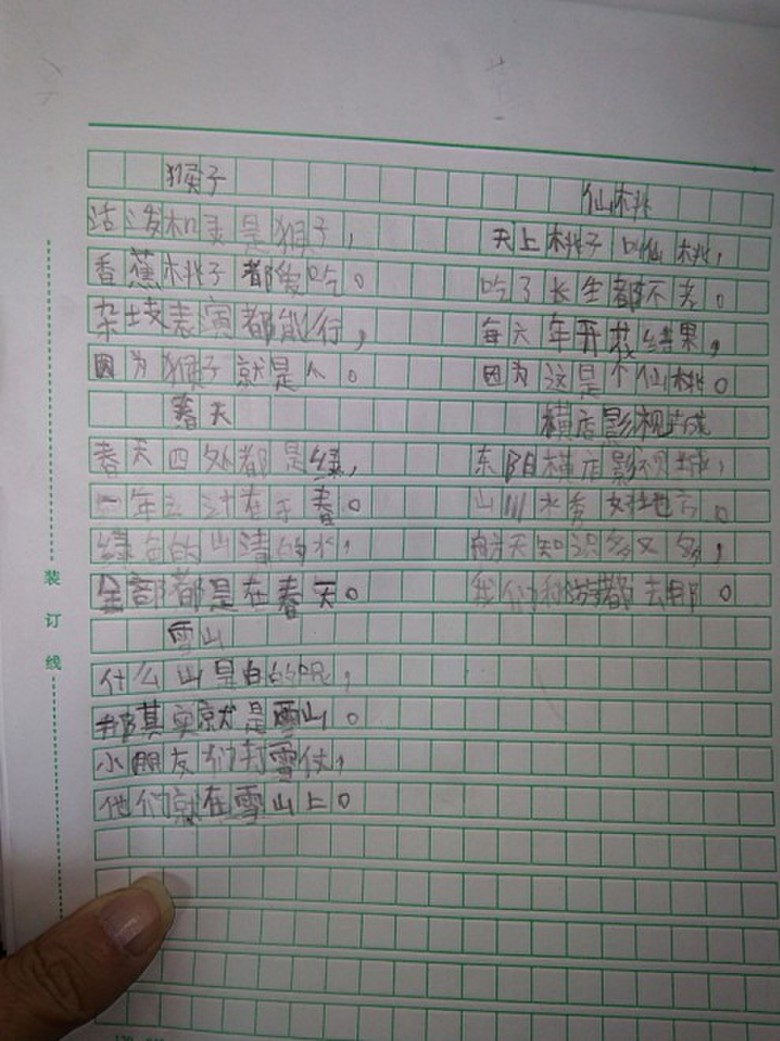 猴子
活泼机灵是猴子，
香蕉桃子都爱吃。
杂技表演都能行，
因为猴子就是人。
春天
春天四处都是绿，
一年之计在于春。
绿色的山清的水，
全部都是在春天。
雪山
什么山是白的呢，
那其实就是雪山。
小朋友们打雪仗，
他们就在雪山上。
仙桃
天上桃子叫仙桃，
吃了长生都不老。
每六年开花结果，
因为这是个仙桃。
横店影视城
东阳横店影视城，
山川水秀好地方。
天知识多又多，
我们都去那。
装订线